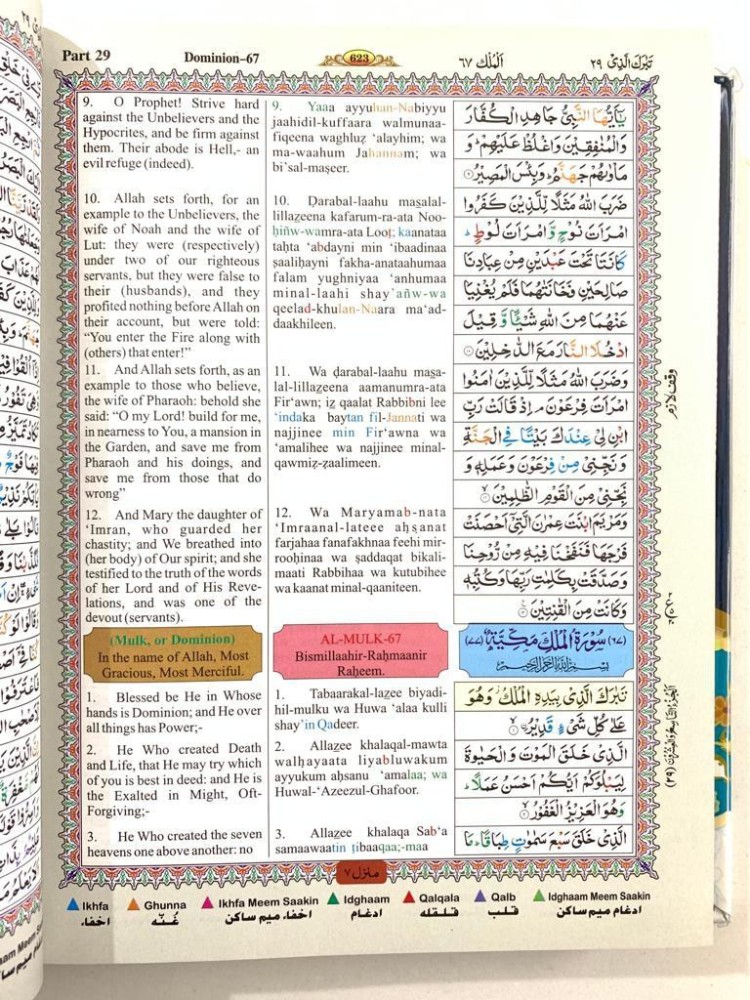 Part 29
Dominion-67
623
اَلْمُلْك ٦٧
تَبٰرَكَ الَّذِىْ ٢٩
9. O Prophet! Strive hard
against the Unbelievers and the
Hypocrites, and be firm against
them. Their abode is Hell,- an
evil refuge (indeed).
10. Allah sets forth, for an
example to the Unbelievers, the
wife of Noah and the wife of
Lut: they were (respectively)
under two of our righteous
servants, but they were false to
their (husbands), and they
profited nothing before Allah on
their account, but were told:
“You enter the Fire along with
(others) that enter!”
11. And Allah sets forth, as an
example to those who believe,
the wife of Pharaoh: behold she
said: “O my Lord! build for me,
in nearness to You, a mansion in
the Garden, and save me from
Pharaoh and his doings, and
save me from those that do
wrong”
12. And Mary the daughter of
‘Imran, who guarded her
chastity; and We breathed into
(her body) of Our spirit; and she
testified to the truth of the words
of her Lord and of His Reve-
lations, and was one of the
devout (servants).
(Mulk, or Dominion)
In the name of Allah, Most
Gracious, Most Merciful.
1. Blessed be He in Whose
hands is Dominion; and He over
all things has Power;-
2. He Who created Death
and Life, that He may try which
of you is best in deed: and He is
the Exalted in Might, Oft-
Forgiving;-
3. He Who created the seven
heavens one above another: no
9. Yaaa ayyuhan-Nabiyyu
jaahidil-kuffaara walmunaa-
fiqeena waghluẓ ‘alayhim; wa
ma-waahum Jahannam; wa
bi’sal-maṣeer.
10. Ḍarabal-laahu masalal-
lillaẓeena kafarum-ra-ata Noo-
ḥiñw-wamra-ata Looṭ; kaanataa
taḥta ‘abdayni min ‘ibaadinaa
ṣaaliḥayni fakha-anataahumaa
falam yughniyaa ‘anhumaa
minal-laahi shay’añw-wa
qeelad-khulan-Naara ma‘ad-
daakhileen.
11. Wa ḍarabal-laahu maṣa-
lal-lillaẓeena aamanumra-ata
Fir‘awn; iẓ qaalat Rabbibni lee
‘indaka baytan fil-Jannati wa
najjinee min Fir‘awna wa
‘amalihee wa najjinee minal-
qawmiẓ-zaalimeen.
12. Wa Maryamab-nata
‘Imraanal-lateee aḥṣanat
farjahaa fanafakhnaa feehi mir-
rooḥinaa wa ṣaddaqat bikali-
maati Rabbihaa wa kutubihee
wa kaanat minal-qaaniteen.
AL-MULK-67
Bismillaahir-Raḥmaanir
Raḥeem.
1. Tabaarakal-laẓee biyadi-
hil-mulku wa Huwa ‘alaa kulli
shay’in Qadeer.
2. Allaẓee khalaqal-mawta
walḥayaata liyabluwakum
ayyukum aḥsanu ‘amalaa; wa
Huwal-‘Azeezul-Ghafoor.
3. Allaẓee khalaqa Sab‘a
samaawaatin ṭibaaqaa;-maa
يٰۤاَيُّهَا النَّبِىُّ جَاهِدِ الْكُفَّارَ
وَالْمُنٰفِقِيْنَ وَاغْلُظْ عَلَيْهِمْ ؕ وَ
مَاْوٰىهُمْ جَهَنَّمُ ؕ وَبِئْسَ الْمَصِيْرُ ۝
ضَرَبَ اللّٰهُ مَثَلًا لِّلَّذِيْنَ كَفَرُوا
امْرَاَتَ نُوْحٍ وَّ امْرَاَتَ لُوْطٍ ؕ
كَانَتَا تَحْتَ عَبْدَيْنِ مِنْ عِبَادِنَا
صَالِحَيْنِ فَخَانَتٰهُمَا فَلَمْ يُغْنِيَا
عَنْهُمَا مِنَ اللّٰهِ شَيْـًٔا وَّ قِيْلَ
ادْخُلَا النَّارَ مَعَ الدّٰخِلِيْنَ ۝
وَضَرَبَ اللّٰهُ مَثَلًا لِّلَّذِيْنَ اٰمَنُوا
امْرَاَتَ فِرْعَوْنَ ۘ اِذْ قَالَتْ رَبِّ
ابْنِ لِىْ عِنْدَكَ بَيْتًا فِى الْجَنَّةِ
وَ نَجِّنِىْ مِنْ فِرْعَوْنَ وَعَمَلِهٖ وَ
نَجِّنِىْ مِنَ الْقَوْمِ الظّٰلِمِيْنَ ۝
وَمَرْيَمَ ابْنَتَ عِمْرٰنَ الَّتِىْۤ اَحْصَنَتْ
فَرْجَهَا فَنَفَخْنَا فِيْهِ مِنْ رُّوْحِنَا
وَصَدَّقَتْ بِكَلِمٰتِ رَبِّهَا وَكُتُبِهٖ
وَكَانَتْ مِنَ الْقٰنِتِيْنَ ۝
(٦٧) سُوْرَةُ الْمُلْكِ مَكِّيَّةٌ (٧٧)
بِسْمِ اللّٰهِ الرَّحْمٰنِ الرَّحِيْمِ
تَبٰرَكَ الَّذِىْ بِيَدِهِ الْمُلْكُ وَهُوَ
عَلٰى كُلِّ شَىْءٍ قَدِيْرُ ۝
الَّذِىْ خَلَقَ الْمَوْتَ وَ الْحَيٰوةَ
لِيَبْلُوَكُمْ اَيُّكُمْ اَحْسَنُ عَمَلًا ؕ
وَهُوَ الْعَزِيْزُ الْغَفُوْرُ ۝
الَّذِىْ خَلَقَ سَبْعَ سَمٰوٰتٍ طِبَاقًا ؕ مَا
وقف لازم
الجزء التاسع والعشرون (٢٩)
منزل ٧
Ikhfa
Ghunna
Ikhfa Meem Saakin
Idghaam
Qalqala
Qalb
Idghaam Meem Saakin
اخفاء
غُنّه
اخفاء میم ساکن
ادغام
قلقله
قلب
ادغام میم ساکن